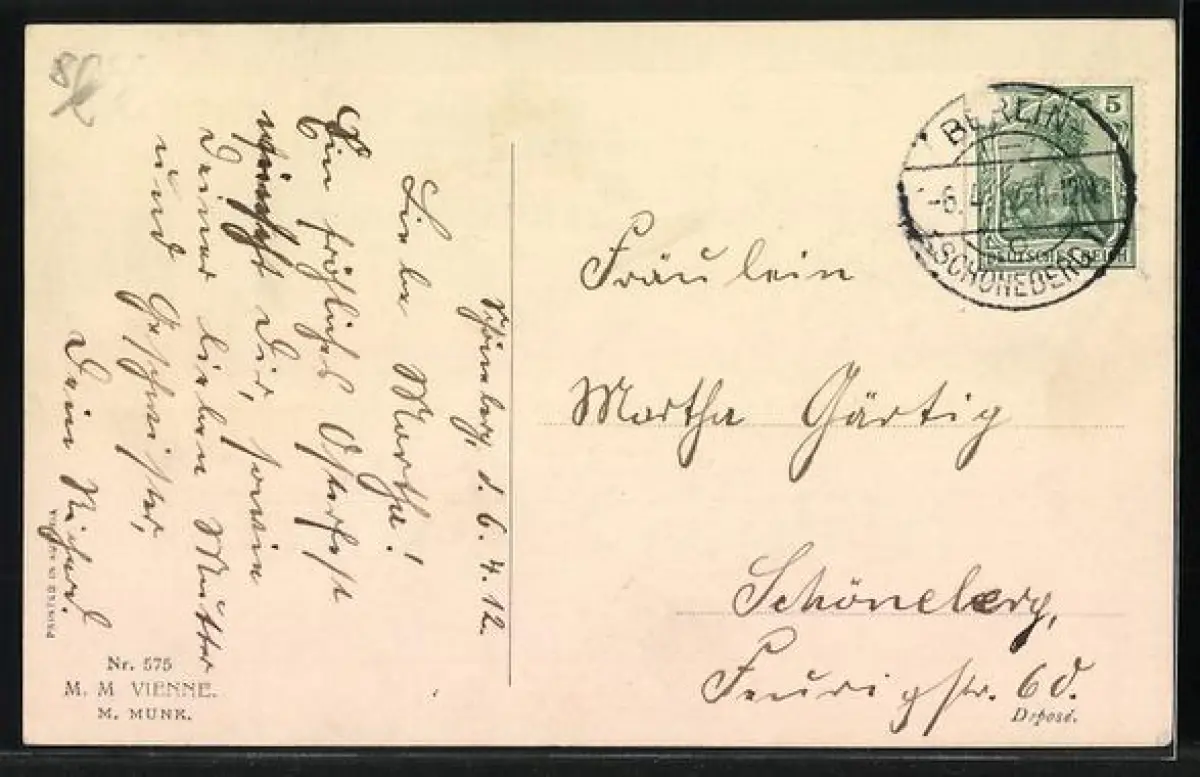 Schöneberg, d. 6.4.12.
Liebe Martha!
Ein fröhliches Osterfest
wünscht Dir, sowie
Deiner lieben Mutter
und Geschwister,
Dein Richard.
PRINTED IN AUSTRIA
Nr. 575
M. M. VIENNE.
M. MUNK.
5
BERLIN
-6.4.
SCHÖNEBERG
DEUTSCHES REICH
Fräulein
Martha Gärtig
Schöneberg,
Feurigstr. 60.
Déposé.